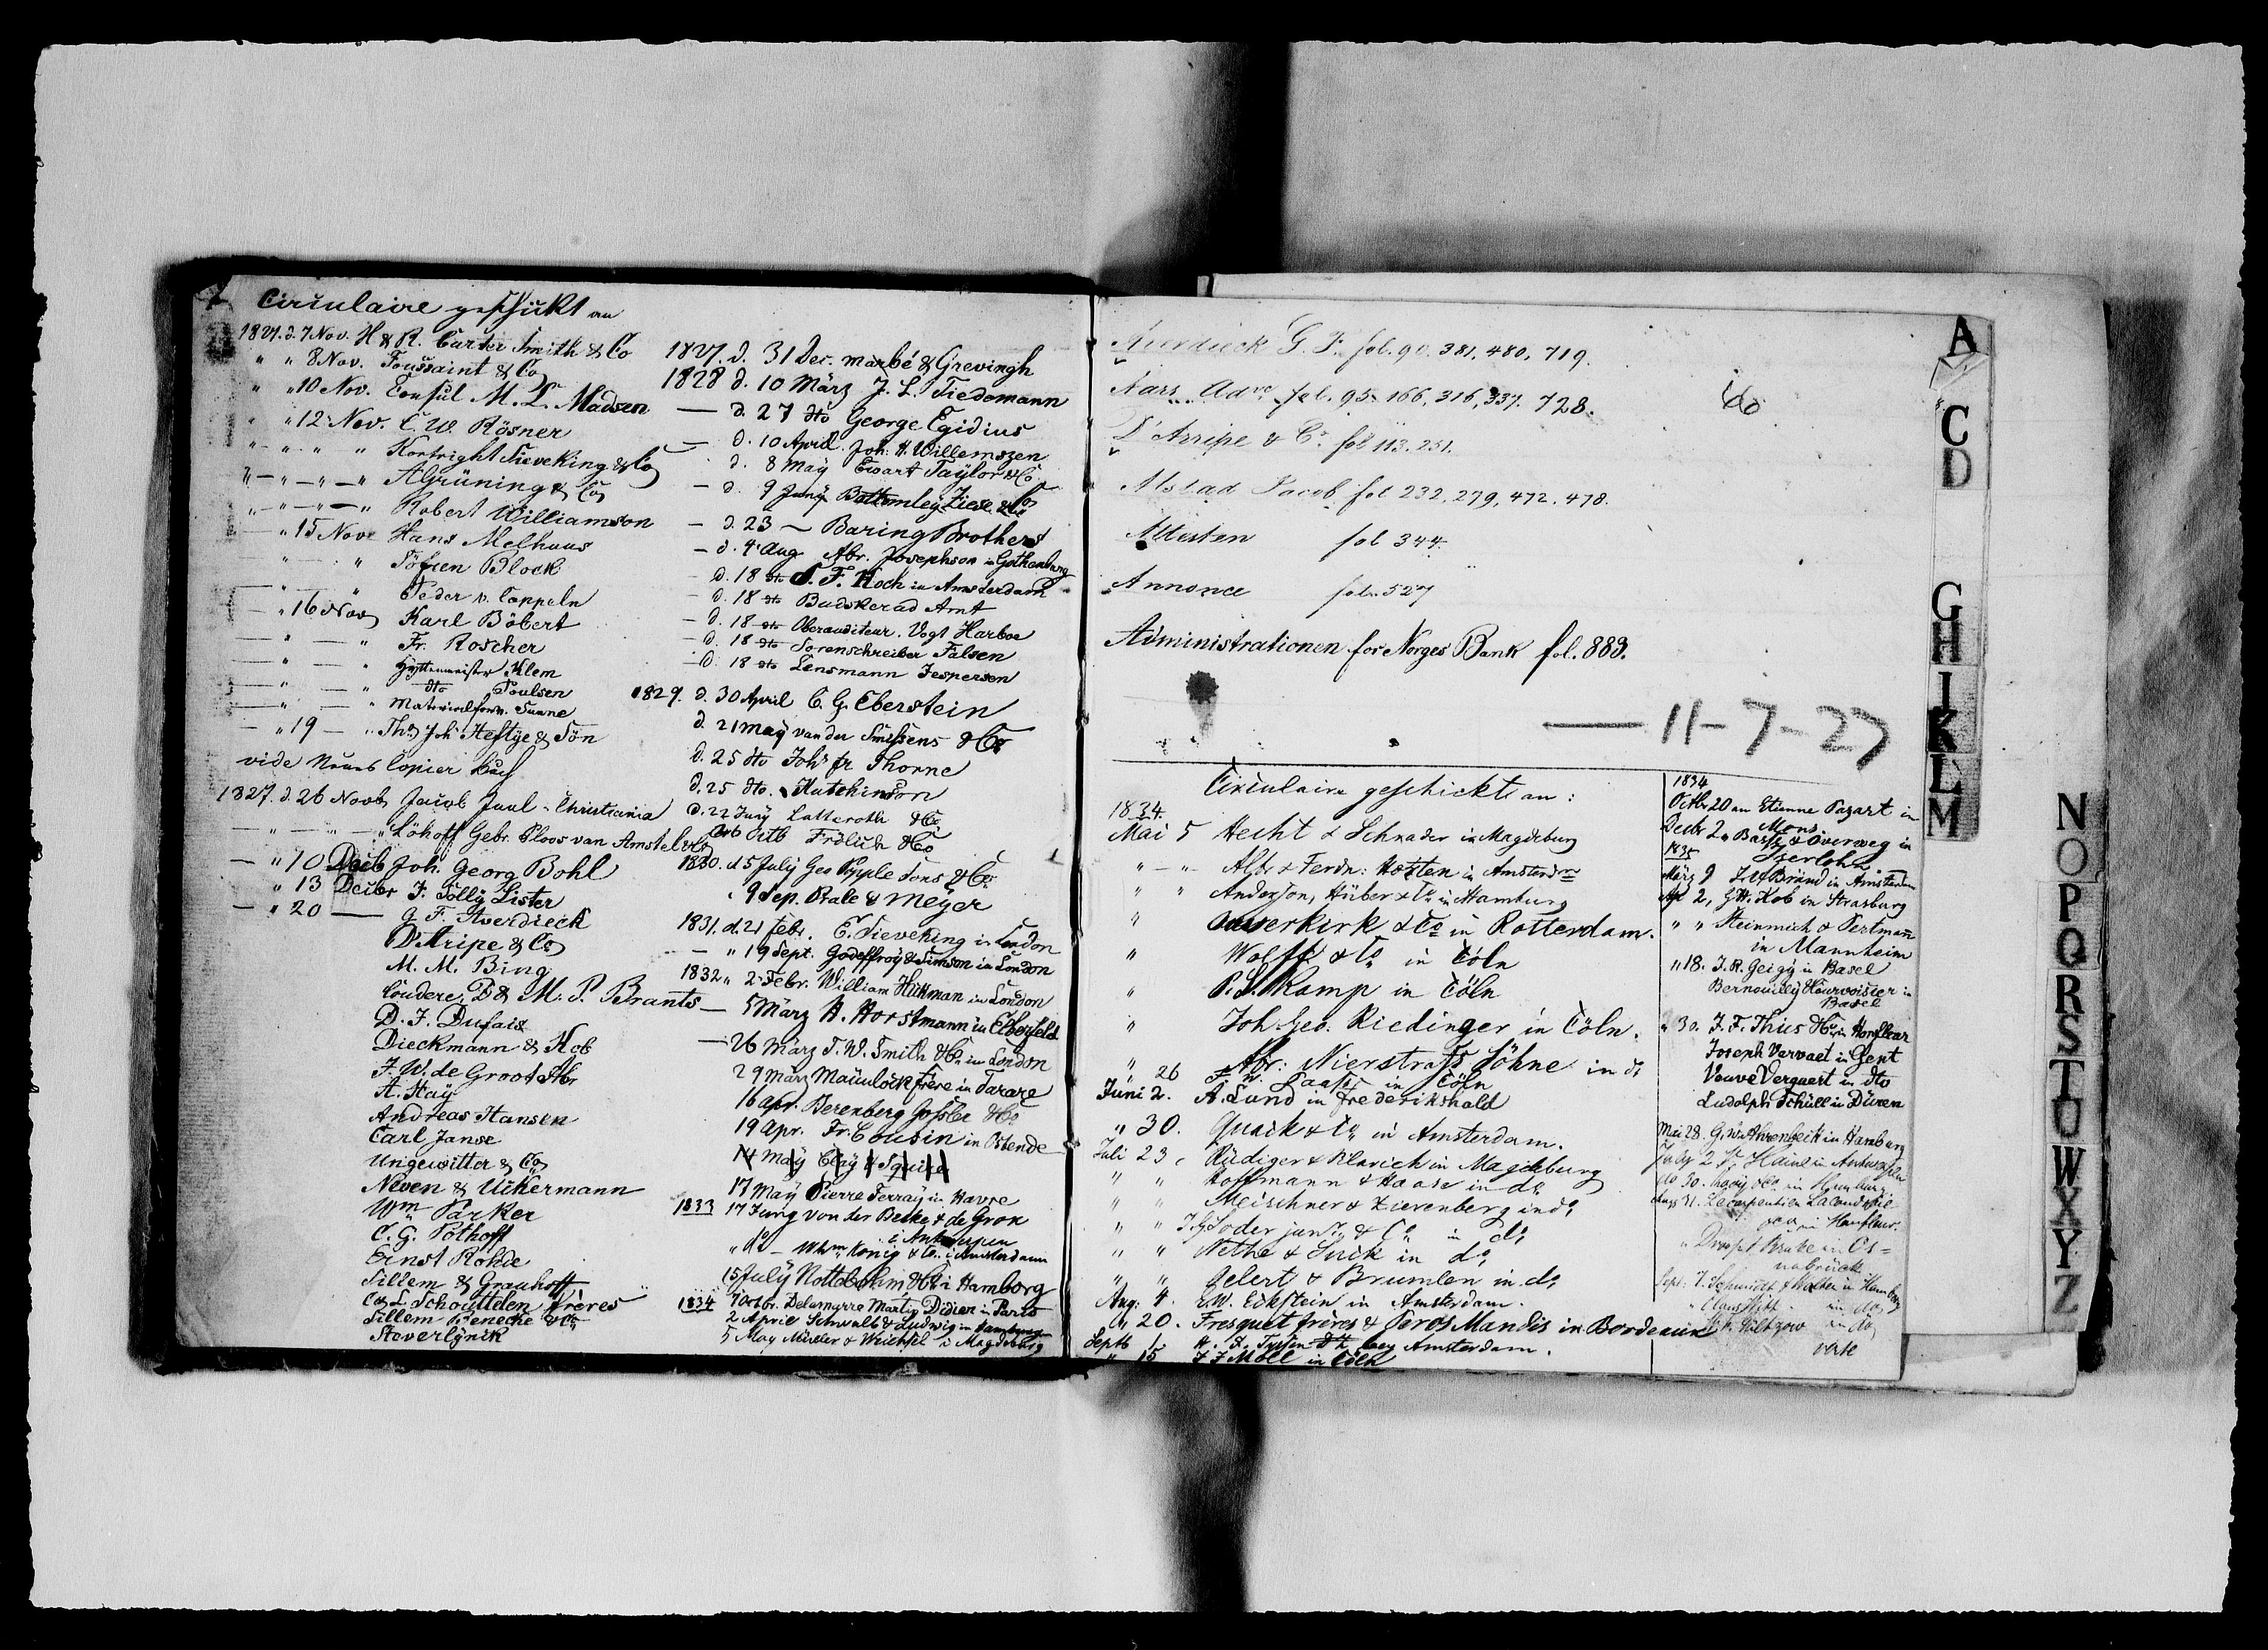 Circulaire geschickt an
1827. d. 7 Nov. H & R. Carter Smith & Co
" " 8 Nov. Toussaint & Co
" " 10 Nov. Consul M. L. Madsen
" " 12 Nov. C. W. Rösner
" - " - " " Kortright Sieveking & Co
" - " - " - " A Grüning & Co
" - " - " Robert Williamson
- " 15 Nov Hans Melhuus
" - " Söfren Block
" - " Peder v. Cappeln
- " 16 Nov Karl Böbert
- " - " Fr. Roscher
- " - " Hyttenmeister Klem
- " - " dto Poulsen
- " - " Materialforv. Sunne
- " 19 - " Ths Joh Heftye & Sön
vide Neues Copier Buch
1827. d. 26 Novb Jacob Juul - Christiania
- " - " - " Löhoff Gebr. Ploos van Amstel & Co
- " 10 Decb Joh. Georg Bohl
" 13 Decbr J. Solly Lister
- " 20 - G F. Averdieck
D'Aripe & Co
M. M. Bing
Coudere, D & M. P. Brants
D. J. Dufais
Dieckmann & Kob
J. W. de Groot Abr
A. Hay
Andreas Hansen
Carl Janse
Ungewitter & Co
Neven & Uckermann
Wm Parker
C. G. Pothoff
Ernst Rohde
Sillem & Grauhoff
C & L Schouttelen Frères
Sillem Benecke & Co
Steverlynk
1827. d. 31 Dec. Marbé & Grevingh
1828 d. 10 März J. L. Tiedemann
- d. 27 dto George Egidius
- d. 10 April Joh. H. Willemszen
d. 8 May Ewart Taylor & Co
- d. 9 Juny Bottomley Ziese & Co
- d. 23 - Baring Brothers
- d. 4 Aug Abr. Josephson in Gothenburg
- d. 18 dto S. F. Koch in Amsterdam
- d. 18 dto Budskerad Amt
- d. 18 dto Oberauditeur. Vogt Harboe
- d. 18 dto Sorenschreiber Falsen
- d. 18 dto Lensmann Jespersen
1829. d. 30 April C. G. Eberstein
d. 21 May van der Smissens & Co
d. 25 dto Johs fr Thorne
d. 25 dto. Hutchinson
d. 22 Juny Latteroth & Co
Octb Frölich & Co
1830. d 5 July Geo Popple Sons & Co
" 9 Sep. Beale & Meyer
1831. d. 21 Febr. E. Sieveking in London
- " 19 Sept. Godeffroy & Simson in London
1832 " 2 Febr. William Hickman in London
- 5 März H. Horstmann in Elberfeld
- 26 März T. W. Smith & Co in London
29 März Maculock Frere in Tarare
16 Apr. Berenberg Gossler & Co
19 Apr. Fr. Cousin in Ostende
14 May Clay & Squire
17 May Pierre Ferray in Havre
1833 17 Juny von der Becke & de Gron
i Antwerpen
" do - Whm König & Co. i Amsterdam
15 July Nottebohm & Co i Hamborg
7 Octbr. Delamarre Martin Didier in Paris
1834 2 April Schwalb & Ludwig in Hamburg
5 May Müller & Weichsel i Magdeburg
Averdieck G. F. fol. 90. 381. 480. 719.
Aars Advo fol. 95. 166. 316, 337. 728.
D'Arripe & Co fol 113. 251.
Alstad Jacob fol 232. 279, 472. 478.
Attesten fol 344.
Annonce fol. 527
Administrationen for Norges Bank fol. 883.
- 11-7-27
Circulaire geschickt an:
1834.
Mai 5 Hecht & Schrader in Magdeburg
" - " Alb. & Ferdn: Hotten in Amsterdm
" " Anderson, Hüber & Co in Hamburg
" Ouwerkirk & Co in Rotterdam.
" Wolff & Co in Cöln
" P. L. Kamp in Cöln
" Joh. Geo. Riedinger in Cöln.
" Abr: Nierstrass Söhne in do
" 26 F W. Laass in Cöln
Juni 2. A. Lund in Frederikshald
" 30. Quack & Co in Amsterdam.
Juli 23, Rüdiger & Klavieh in Magdeburg
" " Hoffmann & Haase in do
" " Meischner & Zierenberg in do
" " J. G. Soder junr. & Co in do
" " Nethe & Linck in do
" " Gelert & Brumlen in do
Aug: 4. E. W. Eckstein in Amsterdam.
" 20. Fresquet frères & Peros Mandis in Bordeaux
Septb 1 in Amsterdam.
" 15 F F Moll in Cöln
1834
Octbr 20 an Etienne Pazart in
Mons
Decbr 2 " Basse & Overweg in
Iserlohn
1835
März 9 J & F Brand in Amsterdam
Ap 2, G. H. Kob in Strasburg
" " Steinmich & Pertmann
in Mannheim
" 18. J. R. Geigy in Basel
Bernouilly Hourvoisier in
Basel
" 30. J. F. Thies & Co in Honfleur
Joseph Vervaet in Gent
Veuve Verquert in dto
Ludolph Schüll in Düren
Mai 28. G. W. Ahrenbeck in Hamburg
July 2 Haine in Antwerpen
do 30. in Hamburg
Aug 31. Lecarpentier Lacoudraie
in Honfleur.
" Droop & Brake in Os=
nabrück
Sept. 7. Schmidt & Wolter in Hamburg
" Claus Witt in do
in do
verte
A
C
D
G
H
I
K
L
M
N
O
P
Q
R
S
T
U
W
X
Y
Z